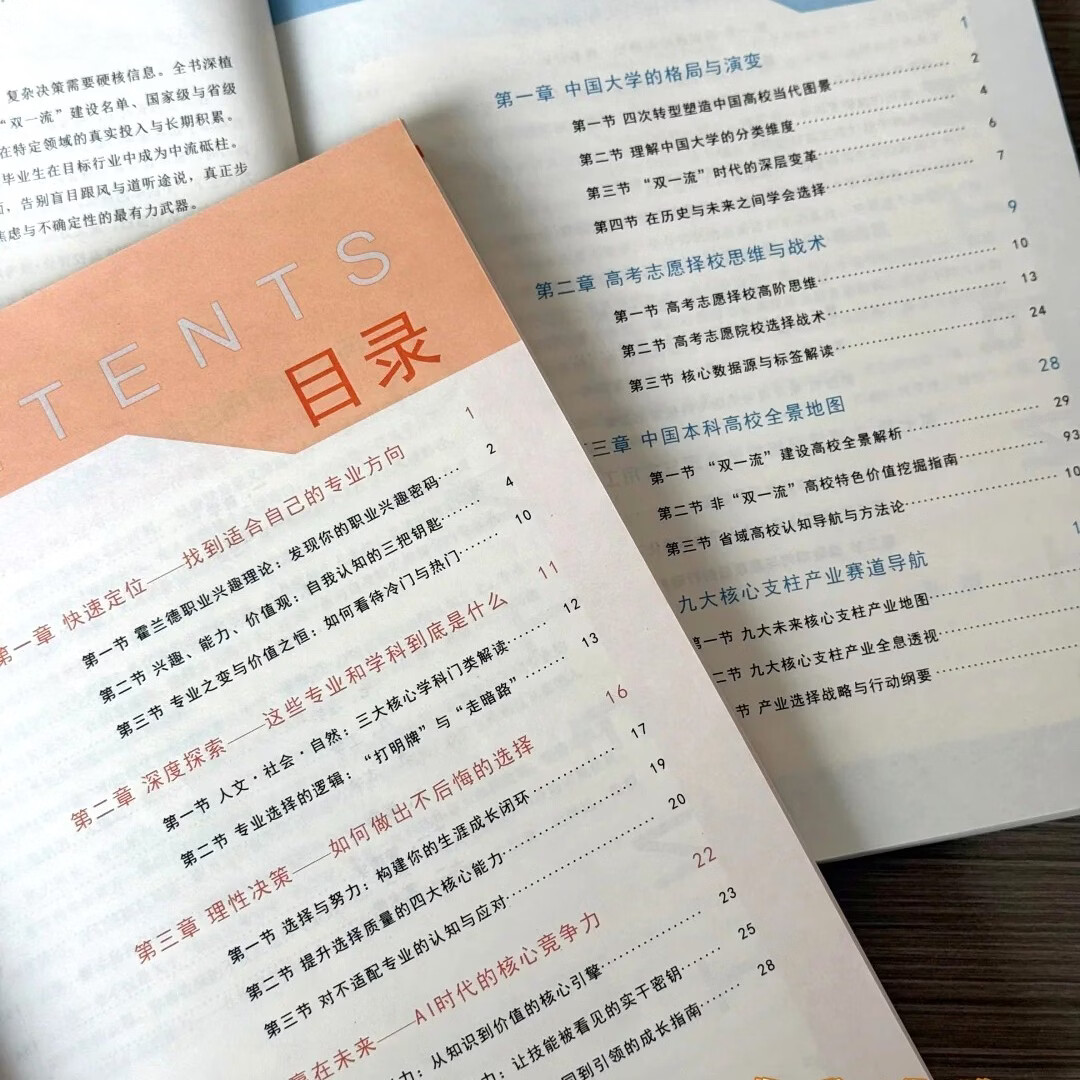 复杂决策需要硬核信息。全书深植
“双一流”建设名单、国家级与省级
在特定领域的真实投入与长期积累。
毕业生在目标行业中成为中流砥柱。
,告别盲目跟风与道听途说，真正步
焦虑与不确定性的最有力武器。
1
第一章 中国大学的格局与演变
第一节 四次转型塑造中国高校当代图景 2
第二节 理解中国大学的分类维度 4
第三节 “双一流”时代的深层变革 6
第四节 在历史与未来之间学会选择 7
第二章 高考志愿择校思维与战术 9
第一节 高考志愿择校高阶思维 10
第二节 高考志愿院校选择战术 13
第三节 核心数据源与标签解读 24
三章 中国本科高校全景地图 28
第一节 “双一流”建设高校全景解析 29
第二节 非“双一流”高校特色价值挖掘指南 93
第三节 省域高校认知导航与方法论 10
九大核心支柱产业赛道导航 1
第一节 九大未来核心支柱产业地图
二节 九大核心支柱产业全息透视
节 产业选择战略与行动纲要
TENTS
目录
第一章 快速定位——找到适合自己的专业方向 1
第一节 霍兰德职业兴趣理论：发现你的职业兴趣密码 2
第二节 兴趣、能力、价值观：自我认知的三把钥匙 4
第三节 专业之变与价值之恒：如何看待冷门与热门 10
第二章 深度探索——这些专业和学科到底是什么 11
第一节 人文·社会·自然：三大核心学科门类解读 12
第二节 专业选择的逻辑：“打明牌”与“走暗路” 13
第三章 理性决策——如何做出不后悔的选择 16
第一节 选择与努力：构建你的生涯成长闭环 17
第二节 提升选择质量的四大核心能力 19
第三节 对不适配专业的认知与应对 20
赢在未来——AI时代的核心竞争力 22
力：从知识到价值的核心引擎 23
力：让技能被看见的实干密钥 25
同到引领的成长指南 28